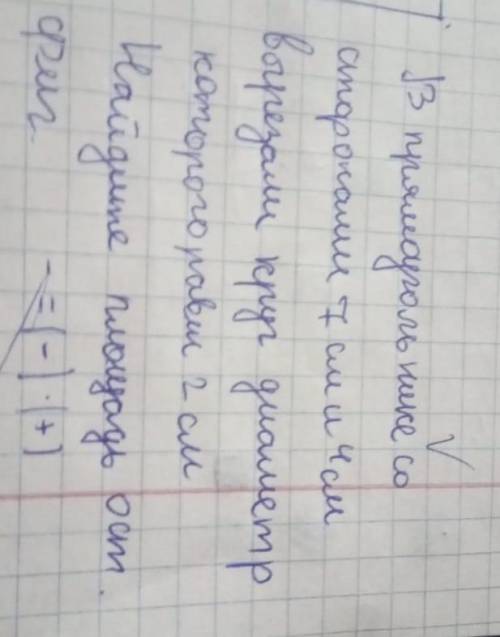 В прямоугольнике со
сторонами 7 см и 4 см
вырезали круг диаметр
которого равен 2 см
Найдите площадь ост.
фиг.
- = ( - ) · ( + )